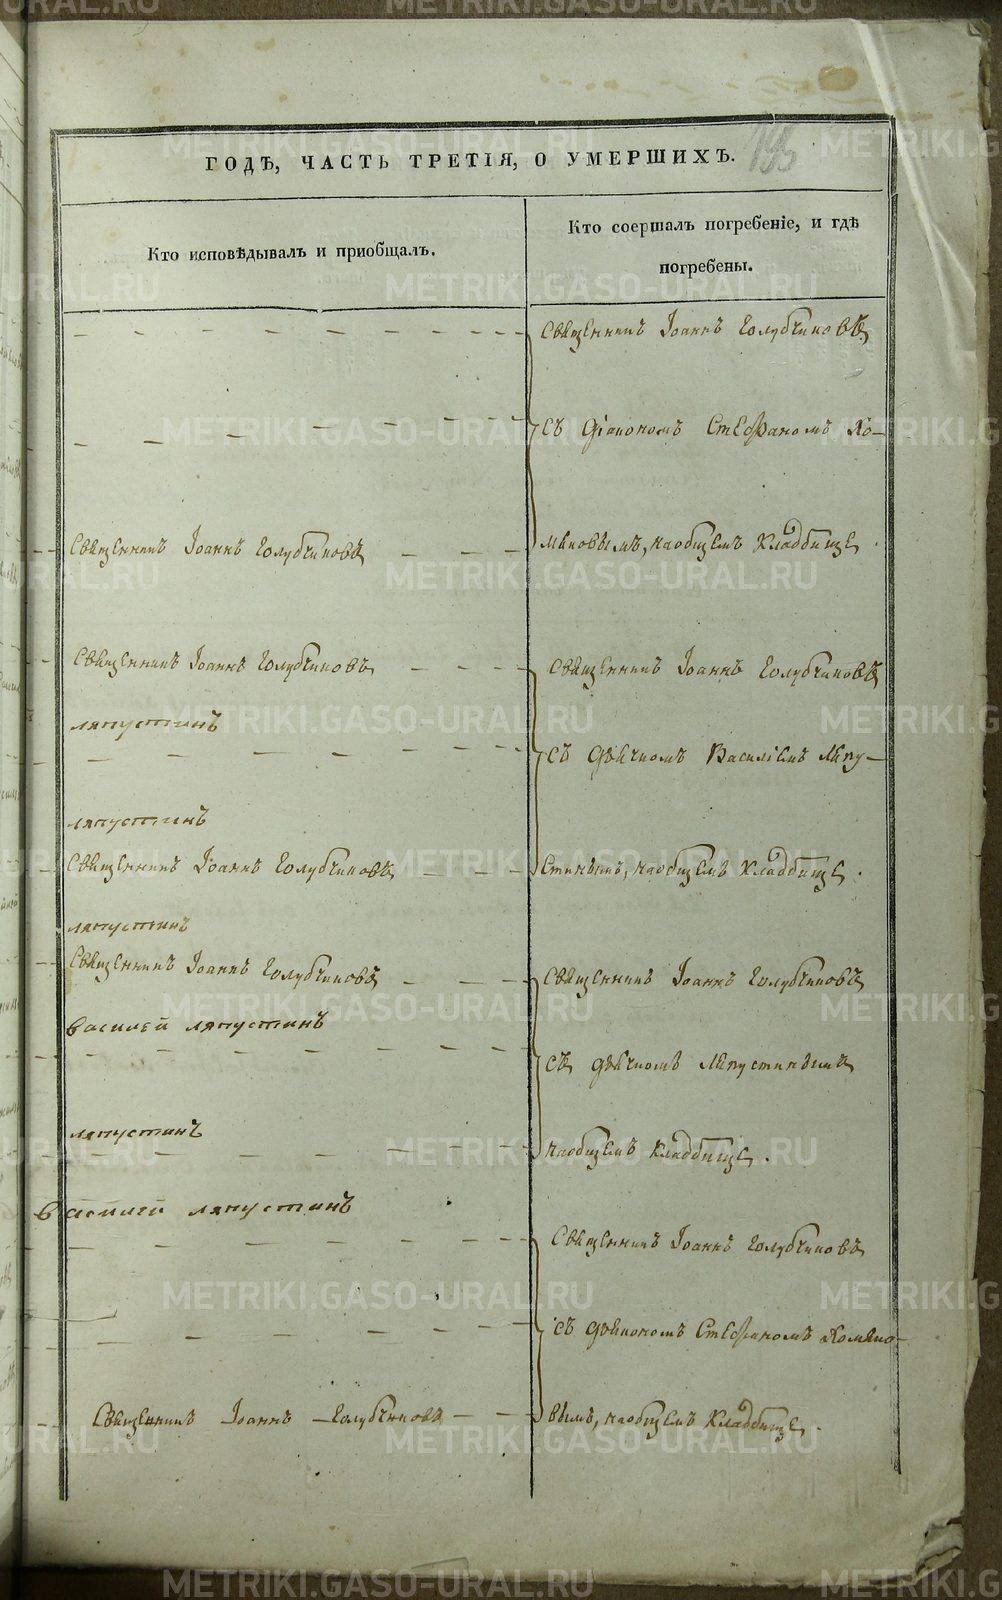 195
ГОДѢ, ЧАСТЬ ТРЕТІЯ, О УМЕРШИХЪ.
Кто исповѣдывалъ и приобщалъ.
Кто соершалъ погребеніе, и гдѣ
погребены.
Священникъ Іоаннъ Голубчиковъ
съ Діакономъ Стефаномъ Хо-
мяковымъ, на общемъ кладбище.
Священникъ Іоаннъ Голубчиковъ
Священникъ Іоаннъ Голубчиковъ
ляпустинъ
ляпустинъ
Священникъ Іоаннъ Голубчиковъ
Священникъ Іоаннъ Голубчиковъ
съ дьячкомъ Василіемъ Ляпу-
стинымъ, на общемъ кладбище.
ляпустинъ
Священникъ Іоаннъ Голубчиковъ
василей ляпустинъ
ляпустинъ
Священникъ Іоаннъ Голубчиковъ
съ дьячкомъ Ляпустинымъ
на общемъ кладбище.
василей ляпустинъ
Священникъ Іоаннъ Голубчиковъ
Священникъ Іоаннъ Голубчиковъ
съ дьякономъ Стефаномъ Хомяко-
вымъ, на общемъ кладбище.
METRIKI.GASO-URAL.RU